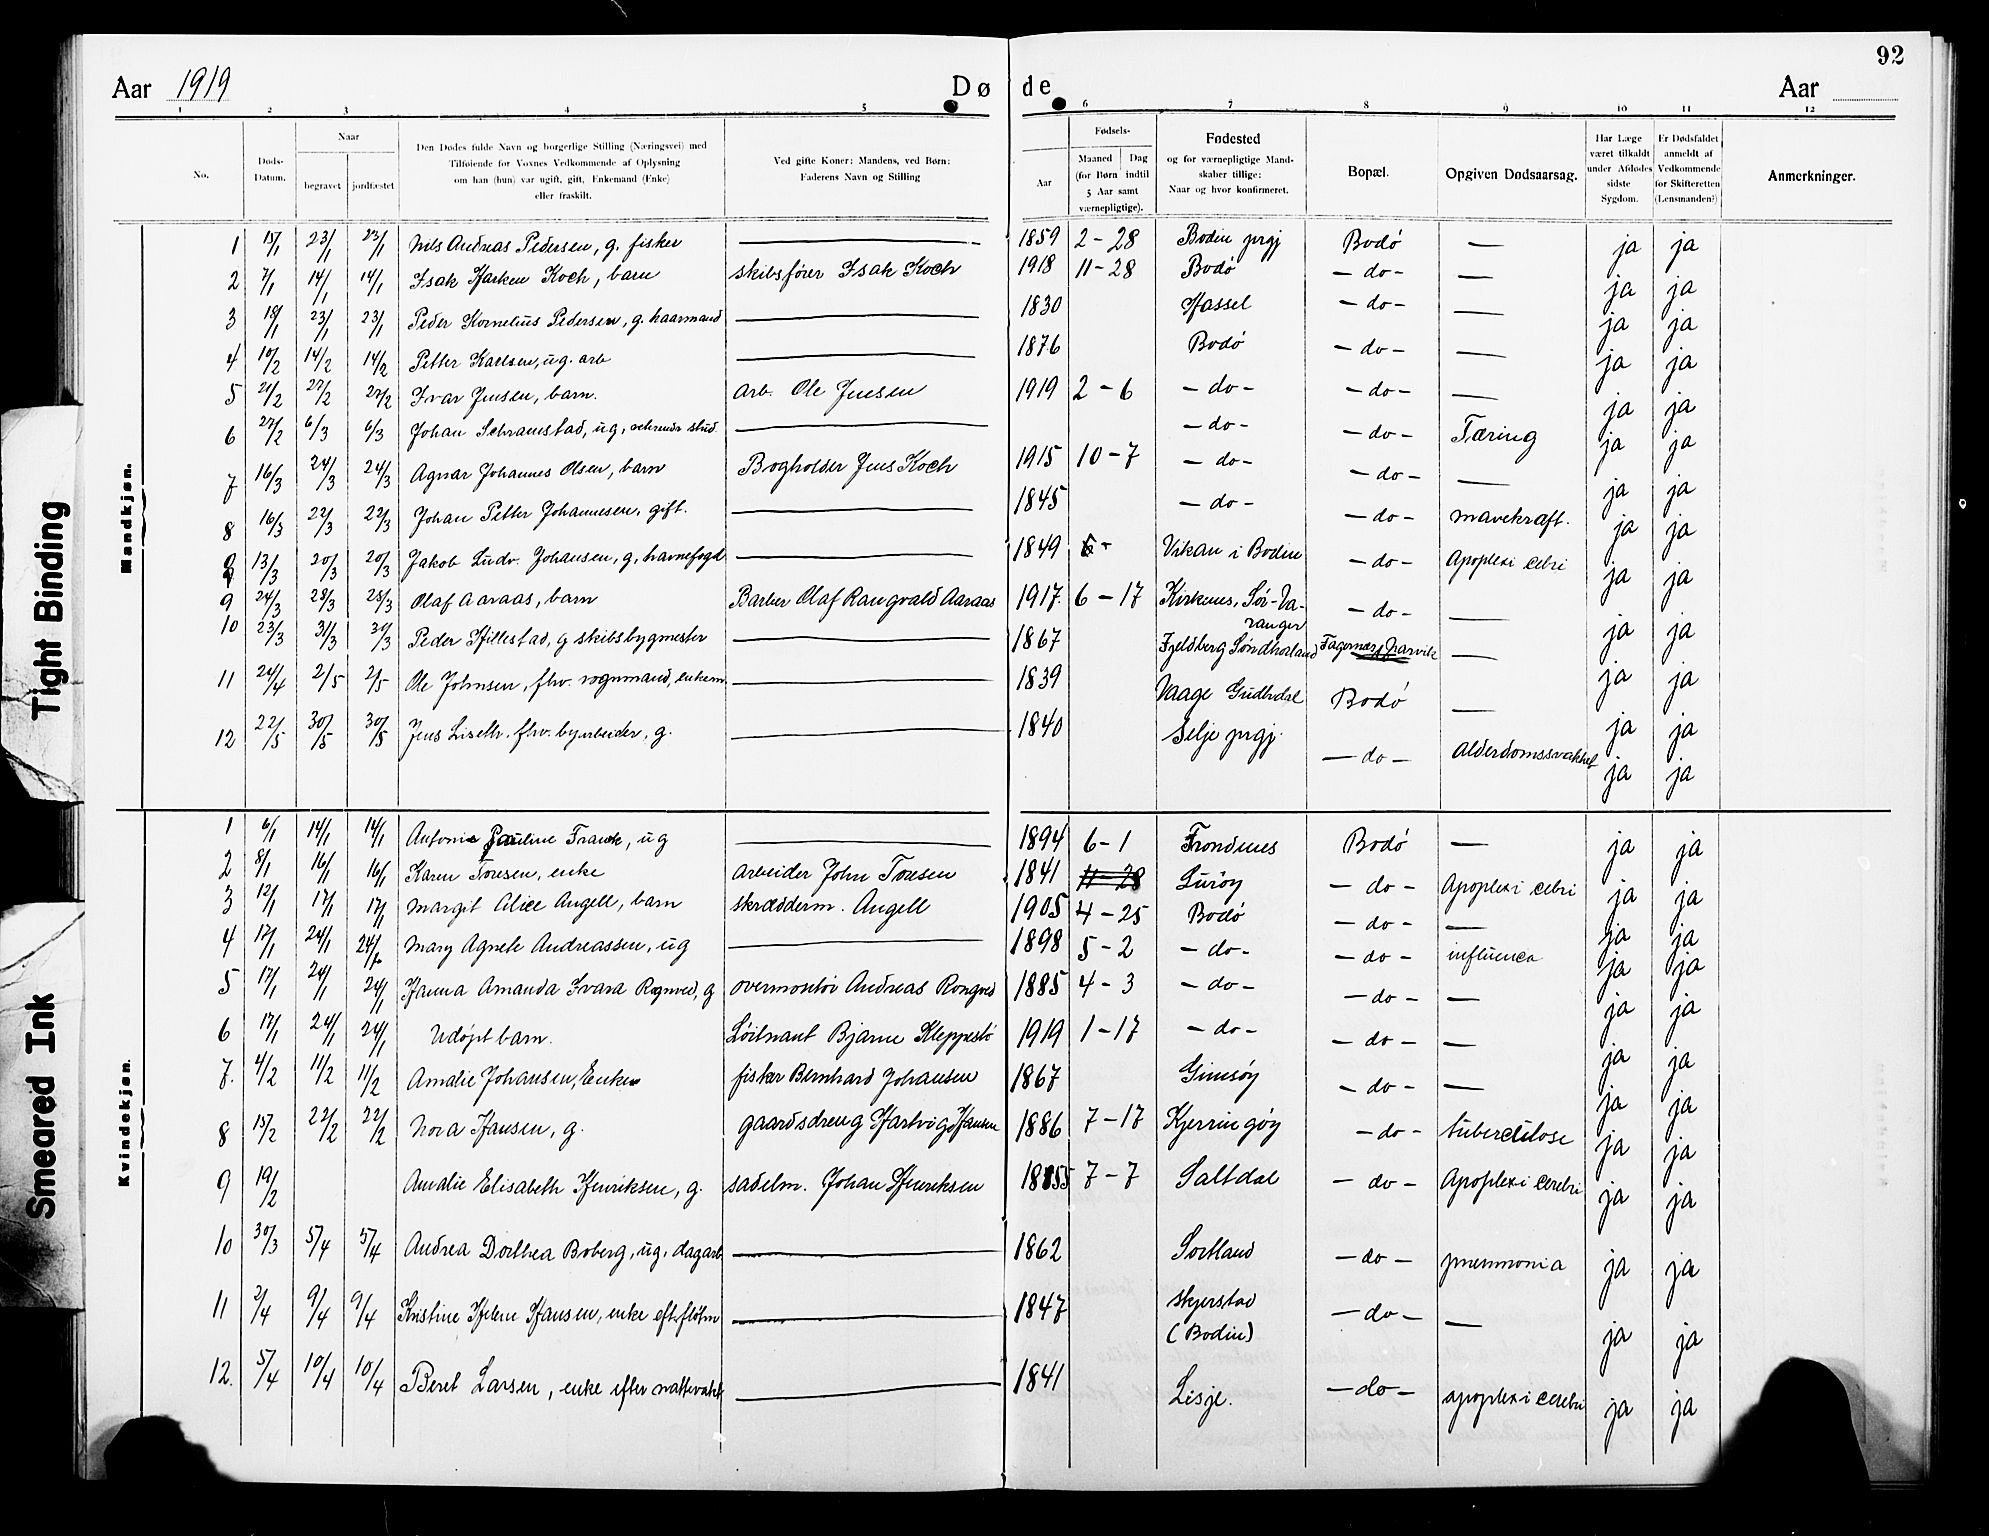 92
Aar 1919 Døde Aar
1 2 3 4 5 6 7 8 9 10 11 12
No. Døds-Datum. Naar begravet jordfæstet Den Dødes fulde Navn og borgerlige Stilling (Næringsvei) med Tilføiende for Voxnes Vedkommende af Oplysning om han (hun) var ugift, gift, Enkemand (Enke) eller fraskilt. Ved gifte Koner: Mandens, ved Børn: Faderens Navn og Stilling Fødsels- Aar Maaned Dag (for Børn indtil 5 Aar samt værnepligtige). Fødested og for værnepligtige Mandskaber tillige: Naar og hvor konfirmeret. Bopæl. Opgiven Dødsaarsag. Har Læge været tilkaldt under Afdødes sidste Sygdom. Er Dødsfaldet anmeldt af Vedkommende for Skifteretten (Lensmanden?) Anmerkninger.
Mandkjøn.
1 15/1 23/1 23/1 Nils Andreas Pedersen, g. fisker — 1859 2-28 Bodin prgj Bodö — ja ja
2 7/1 14/1 14/1 Isak Harken Koch, barn skibsfører Isak Koch 1918 11-28 Bodö -do- — ja ja
3 18/1 23/1 23/1 Peder Kornelius Pedersen, g. haarmand — 1830 Hassel -do- — ja ja
4 10/2 14/2 14/2 Petter Karlsen, ug. arb — 1876 Bodö -do- — ja ja
5 21/2 27/2 27/2 Ivar Jensen, barn. arb. Ole Jensen 1919 2-6 -do- -do- — ja ja
6 27/2 6/3 6/3 Johan Schramstad, ug, stud. — -do- -do- Tæring ja ja
7 16/3 24/3 24/3 Agnar Johannes Olsen, barn Bogholder Jens Koch 1915 10-7 -do- -do- — ja ja
8 16/3 22/3 22/3 Johan Petter Johannesen, gift. — 1845 -do- -do- mavekræft. ja ja
9 13/3 20/3 20/3 Jakob Ludv. Johansen, g, havnefogd — 1849 6- Vikan i Bodin -do- Apoplexi cebri ja ja
9 24/3 28/3 28/3 Olaf Aaraas, barn Barber Olaf Rangvald Aaraas 1917. 6-17 Kirkenes, Sör-Varanger -do- — ja ja
10 23/3 31/3 31/3 Peder Hillestad, g skibsbygmester — 1867 Fjeldberg Söndhorland Fagernæs, Narvik — ja ja
11 24/4 2/5 2/5 Ole Johnsen, fhv. vognmand, enkem. — 1839 Vaage Gudbdal Bodö — ja ja
12 22/5 30/5 30/5 Jens Liseth. fhv. byarbeider, g. — 1840 Selje prgj. -do- Alderdomssvakhet ja ja
Kvindekjøn.
1 6/1 14/1 14/1 Antonie Pauline Frank, ug — 1894 6-1 Trondenes Bodö — ja ja
2 8/1 16/1 16/1 Karen Toresen, enke arbeider John Toresen 1841 11-28 Luröy -do- Apoplexi cebri ja ja
3 12/1 17/1 17/1 Margit Alice Angell, barn skrædderm. Angell 1905 4-25 Bodö -do- — ja ja
4 17/1 24/1 24/1 Mary Agnete Andreassen, ug — 1898 5-2 -do- -do- influenca ja ja
5 17/1 24/1 24/1 Hanna Amanda Ivara Rognved, g overmontör Andreas Rongved 1885 4-3 -do- -do- — ja ja
6 17/1 24/1 24/1 Udøpt barn. Löitnant Bjarne Kleppestö 1919 1-17 -do- -do- — ja ja
7. 4/2 11/2 11/2 Amalie Johansen, Enke fisker Bernhard Johansen 1867 Gimsöy -do- — ja ja
8 15/2 22/2 22/2 Nora Hansen, g. gaardsdreng Hartvig Hansen 1886 7-17 Kjerringöy -do- tuberculose ja ja
9 19/2 Amalie Elisabeth Henriksen, g. sadelm. Johan Henriksen 1855 7-7 Saltdal -do- Apoplexi cerebri ja ja
10 30/3 5/4 5/4 Andrea Dorthea Boberg, ug. dagarb — 1862 Sortland -do- pneumonia ja ja
11 2/4 9/4 9/4 Kristine Helene Hansen, enke eft. flötm — 1847 Skjerstad (Bodin) -do- — ja ja
12. 5/4 10/4 10/4 Beret Larsen, enke efter nattevakt — 1841 Lesje. -do- apoplexi cerebri ja ja
Tight Binding
Smeared Ink